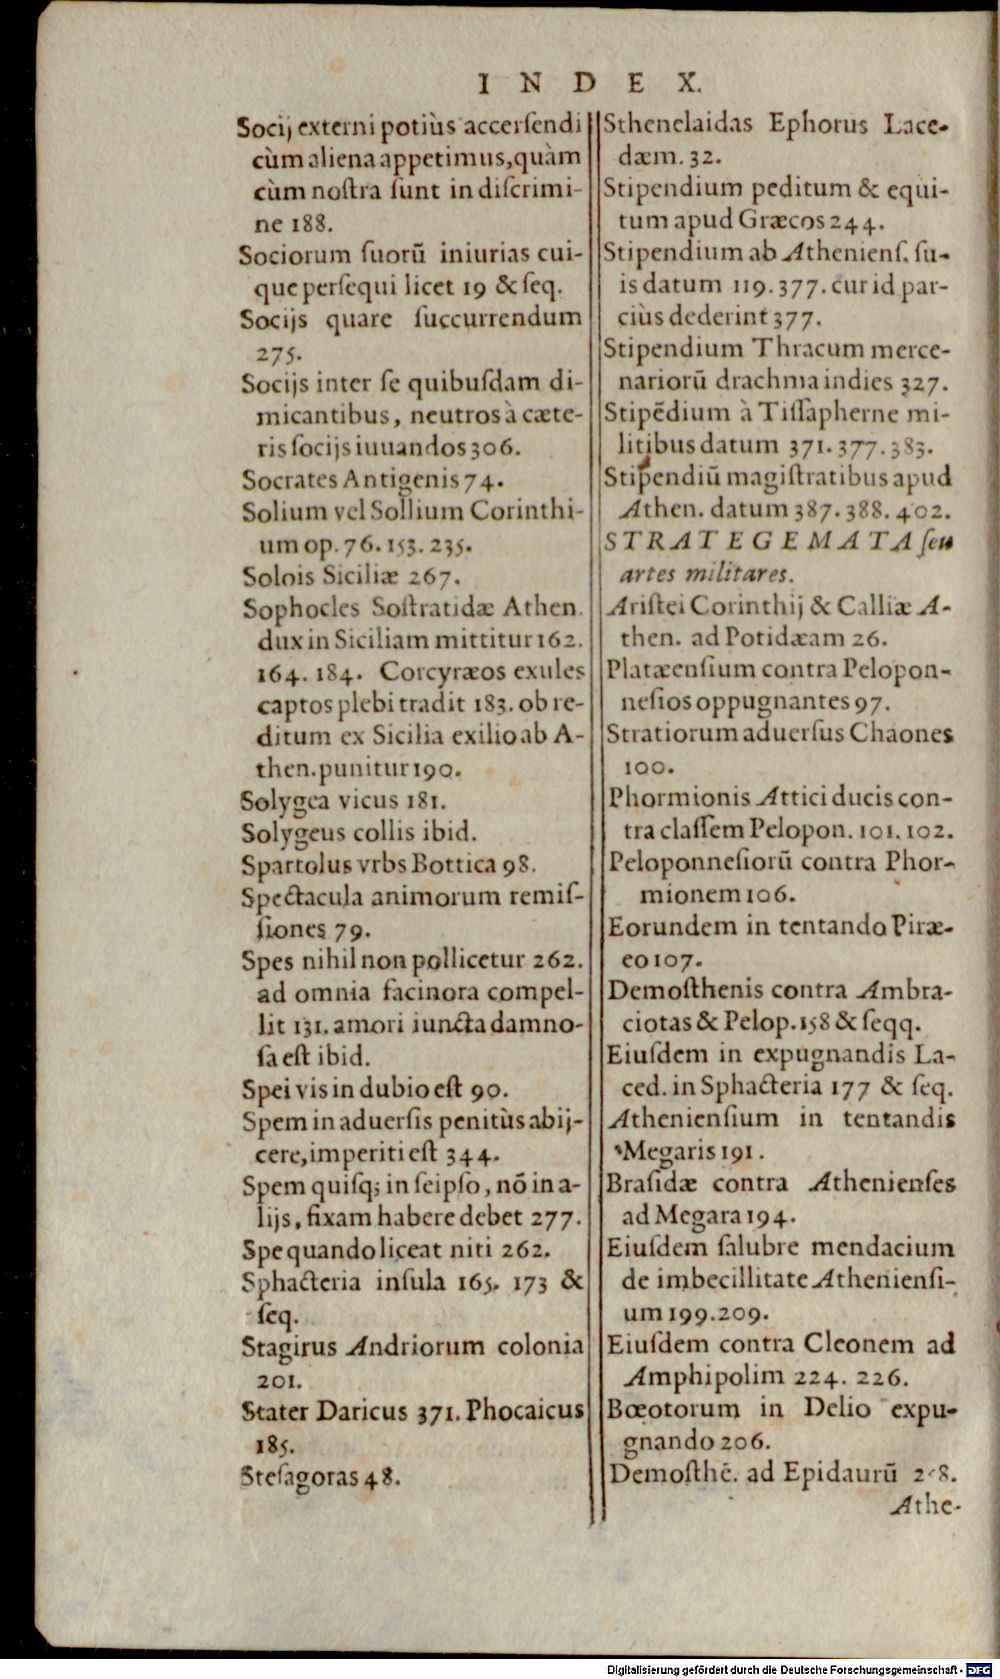 INDEX.
Socij externi potiùs accersendi
cùm aliena appetimus, quàm
cùm nostra sunt in discrimi-
ne 188.
Sociorum suorũ iniurias cui-
que persequi licet 19 & seq.
Socijs quare succurrendum
275.
Socijs inter se quibusdam di-
micantibus, neutros à cæte-
ris socijs iuuandos 306.
Socrates Antigenis 74.
Solium vel Sollium Corinthi-
um op. 76. 153. 235.
Solois Siciliæ 267.
Sophocles Sostratidæ Athen.
dux in Siciliam mittitur 162.
164. 184. Corcyræos exules
captos plebi tradit 183. ob re-
ditum ex Sicilia exilio ab A-
then. punitur 190.
Solygea vicus 181.
Solygeus collis ibid.
Spartolus vrbs Bottica 98.
Spectacula animorum remis-
siones 79.
Spes nihil non pollicetur 262.
ad omnia facinora compel-
lit 131. amori iuncta damno-
sa est ibid.
Spei vis in dubio est 90.
Spem in aduersis penitùs abij-
cere, imperiti est 344.
Spem quisq; in seipso, nõ in a-
lijs, fixam habere debet 277.
Spe quando liceat niti 262.
Sphacteria insula 165. 173 &
seq.
Stagirus Andriorum colonia
201.
Stater Daricus 371. Phocaicus
185.
Stesagoras 48.
Sthenelaidas Ephorus Lace-
dæm. 32.
Stipendium peditum & equi-
tum apud Græcos 244.
Stipendium ab Atheniens. su-
is datum 119. 377. cur id par-
ciùs dederint 377.
Stipendium Thracum merce-
nariorũ drachma indies 327.
Stipẽdium à Tissapherne mi-
litibus datum 371. 377. 383.
Stipendiũ magistratibus apud
Athen. datum 387. 388. 402.
STRATEGEMATA seu
artes militares.
Aristei Corinthij & Calliæ A-
then. ad Potidæam 26.
Platæensium contra Pelopon-
nesios oppugnantes 97.
Stratiorum aduersus Chaones
100.
Phormionis Attici ducis con-
tra classem Pelopon. 101. 102.
Peloponnesiorũ contra Phor-
mionem 106.
Eorundem in tentando Piræ-
eo 107.
Demosthenis contra Ambra-
ciotas & Pelop. 158 & seqq.
Eiusdem in expugnandis La-
ced. in Sphacteria 177 & seq.
Atheniensium in tentandis
Megaris 191.
Brasidæ contra Athenienses
ad Megara 194.
Eiusdem salubre mendacium
de imbecillitate Atheniensi-
um 199. 209.
Eiusdem contra Cleonem ad
Amphipolim 224. 226.
Bœotorum in Delio expu-
gnando 206.
Demosthẽ. ad Epidaurũ
Athe-
Digitalisierung gefördert durch die Deutsche Forschungsgemeinschaft - DFG